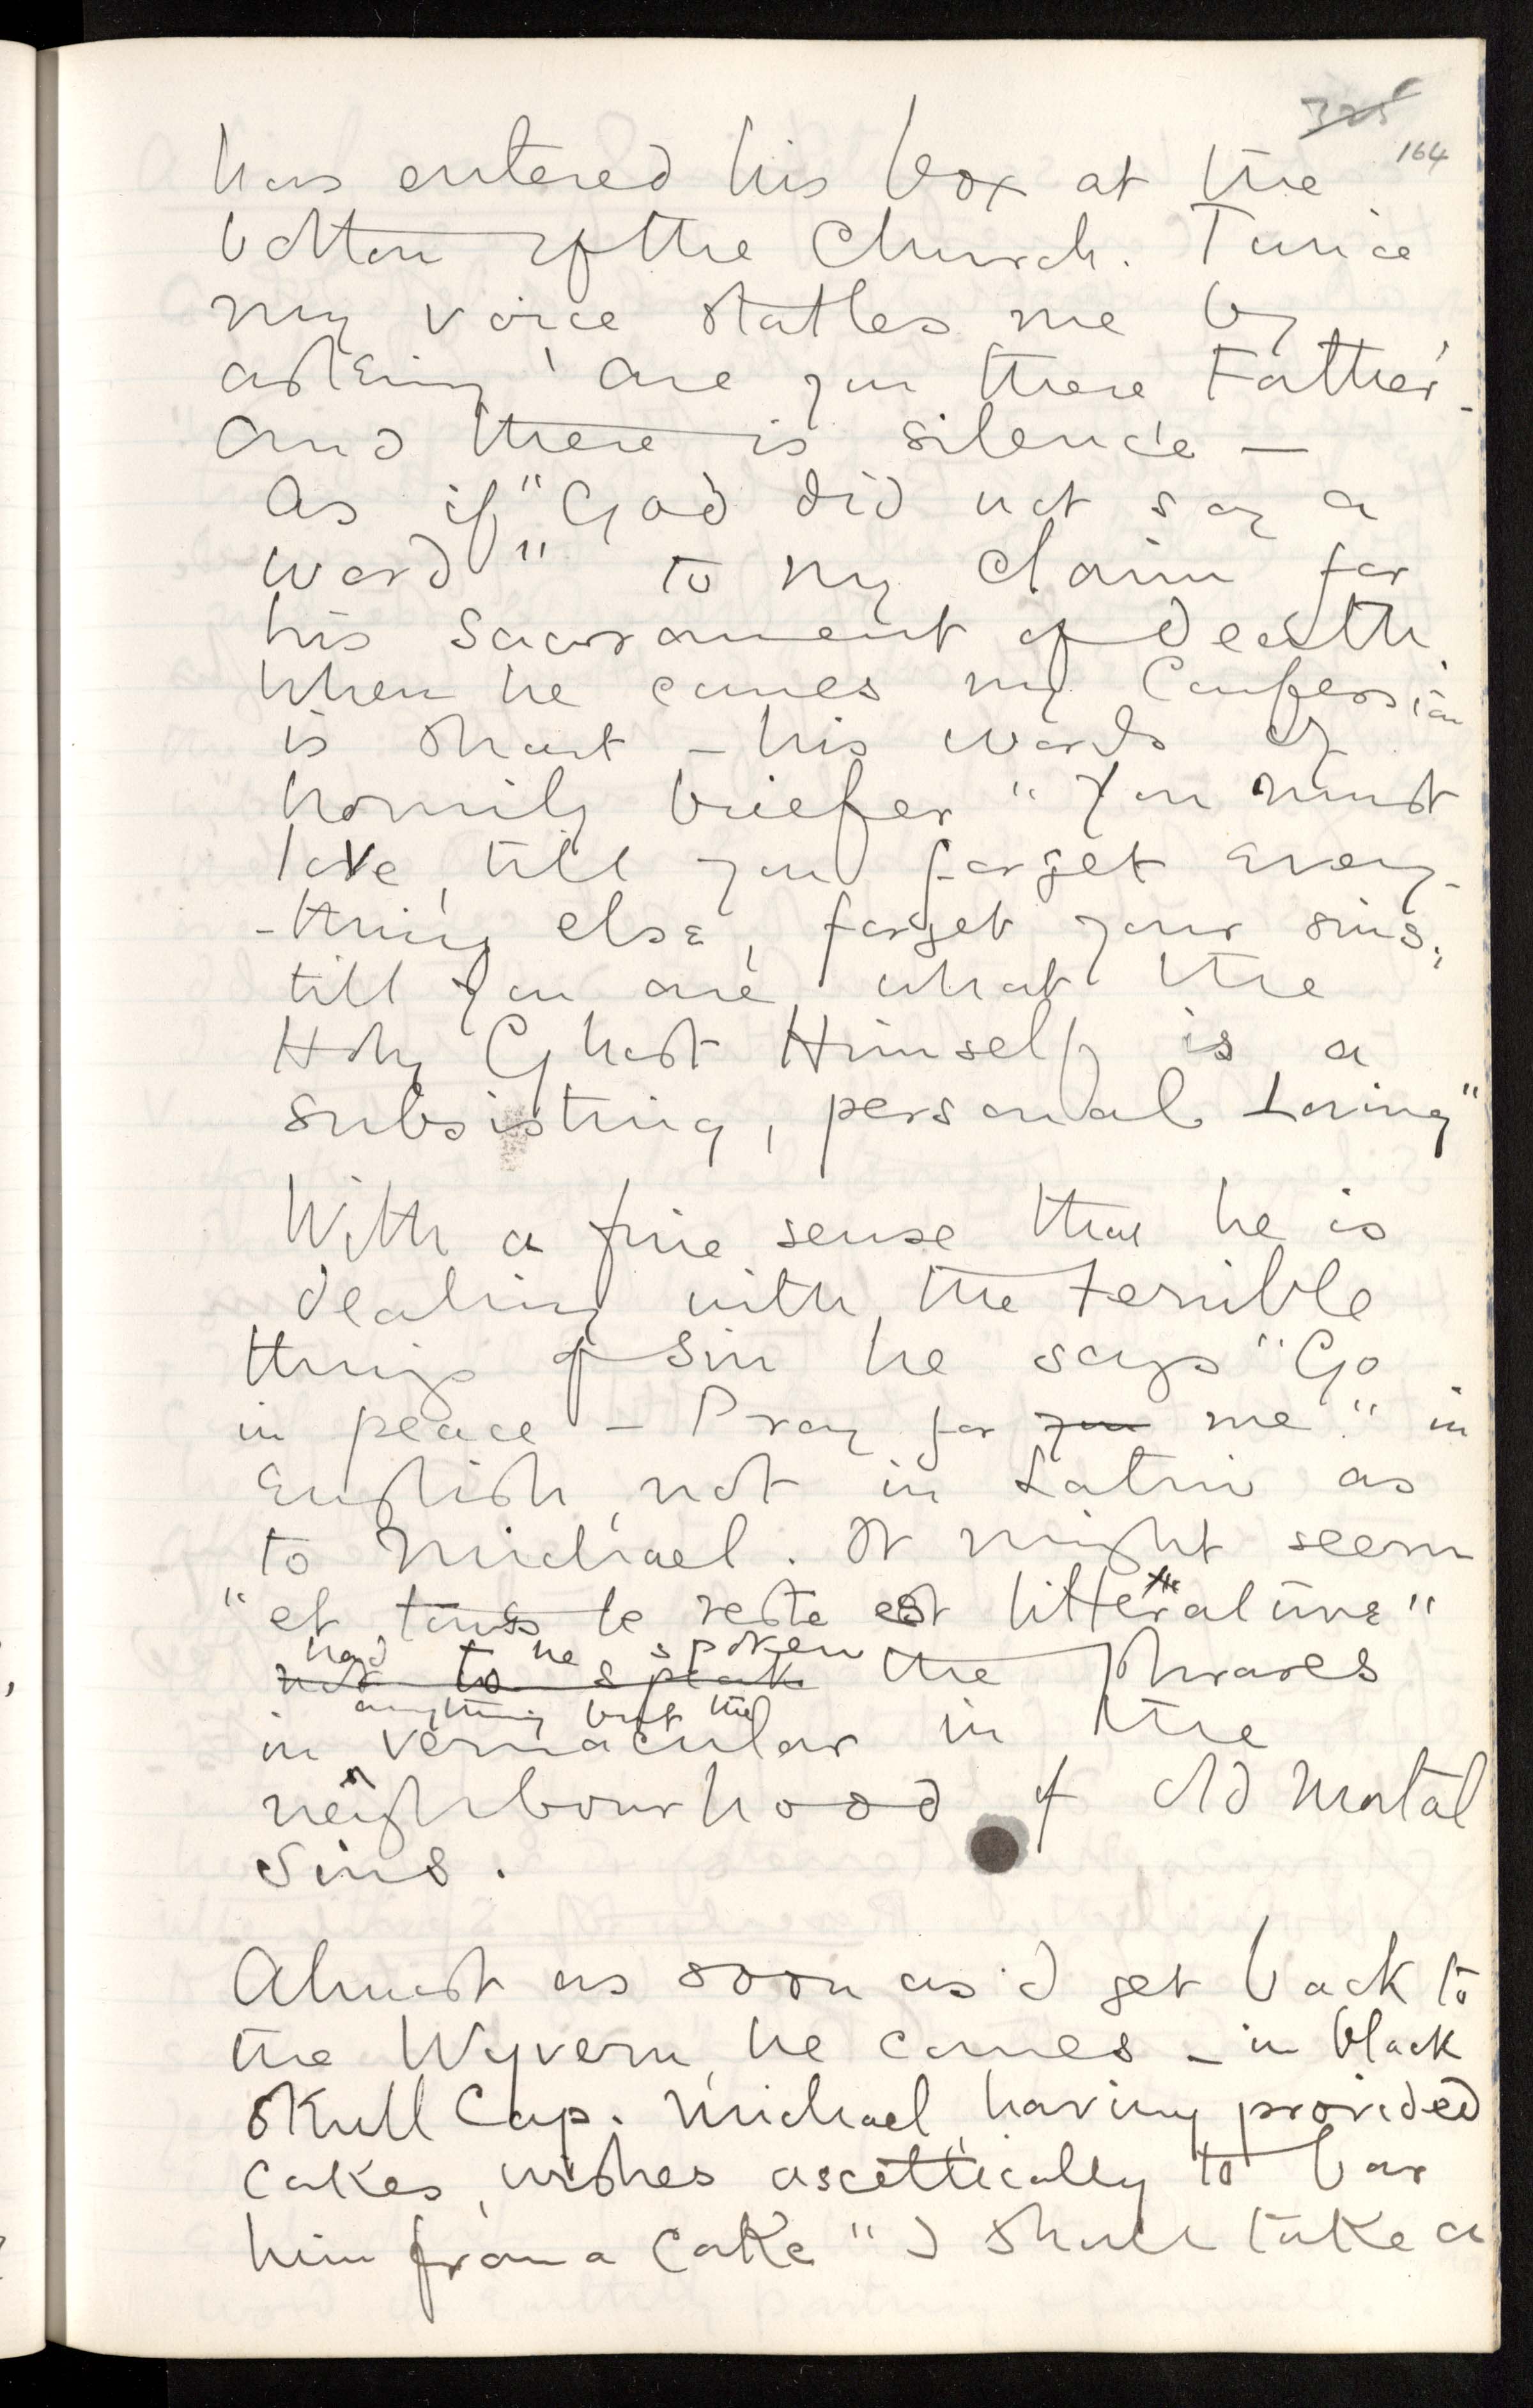 325
164
has entered his box at the
bottom of the Church. Twice
my voice statles me by
asking 'are you there Father'-
and there is silence —
As if "God did not say a
word" to my claim for
his Sacrament of Death.
When he comes my Confession
is short – his words of
homily briefer "You must
love, till you forget every-
-thing else, forget your sins,
till you are, what the
Holy Ghost Himself is a
subsisting, personal Loving"
With a fine sense that he is
dealing with the terrible
things of Sin he says "Go
in peace – Pray for you me." in
English, not in Latin as
to Michael. It might seem
"et tous le reste est litterature"
had he spoken
not to speak the phrases
anything but the
in vernacular in the
neighbourhood of old Mortal
Sins.
Almost as soon as I get back to
the Wyvern, he comes – in black
Skull Cap. Michael, having provided
Cakes, wishes ascettically to bar
him from a Cake "I shall take a